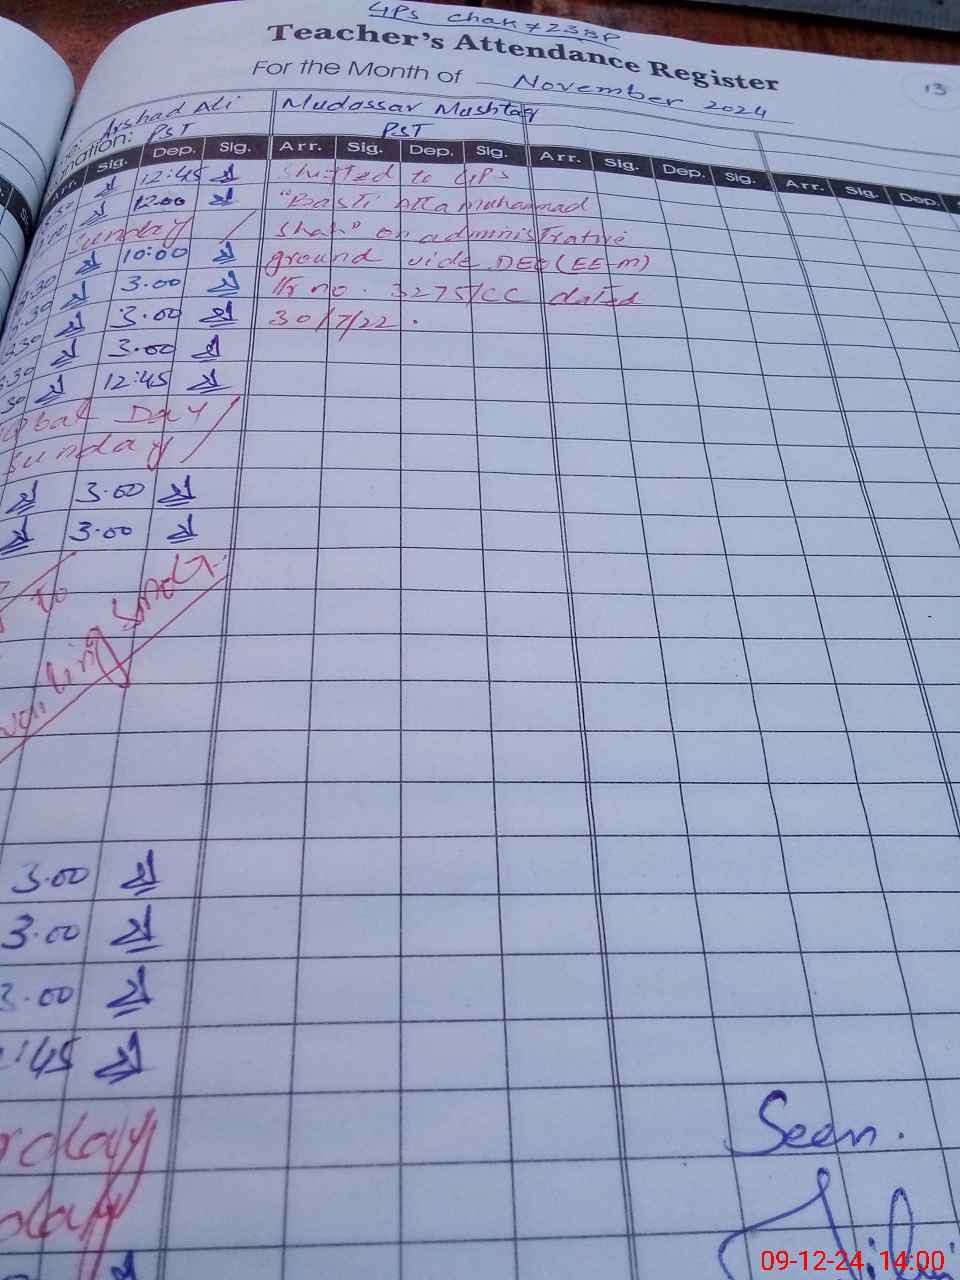 GPS Chak 723BP
Teacher's Attendance Register
For the Month of November 2024
13
Arshad Ali
Mudassar Mushtaq
PST
PST
Arr. Sig. Dep. Sig. Arr. Sig. Dep. Sig. Arr. Sig. Dep. Sig. Arr. Sig. Dep.
12:45 Shifted to GPS
12:00 "Basti Atta Muhammad
Sunday Shah" on administrative
10:00 ground vide DEO (EE-M)
3.00 no. 3275/CC dated
3.00 30/7/22.
3.00
12:45
Day
Sunday
3.00
3.00
to
3.00
3.00
3.00
:45
Seen.
09-12-24, 14:00